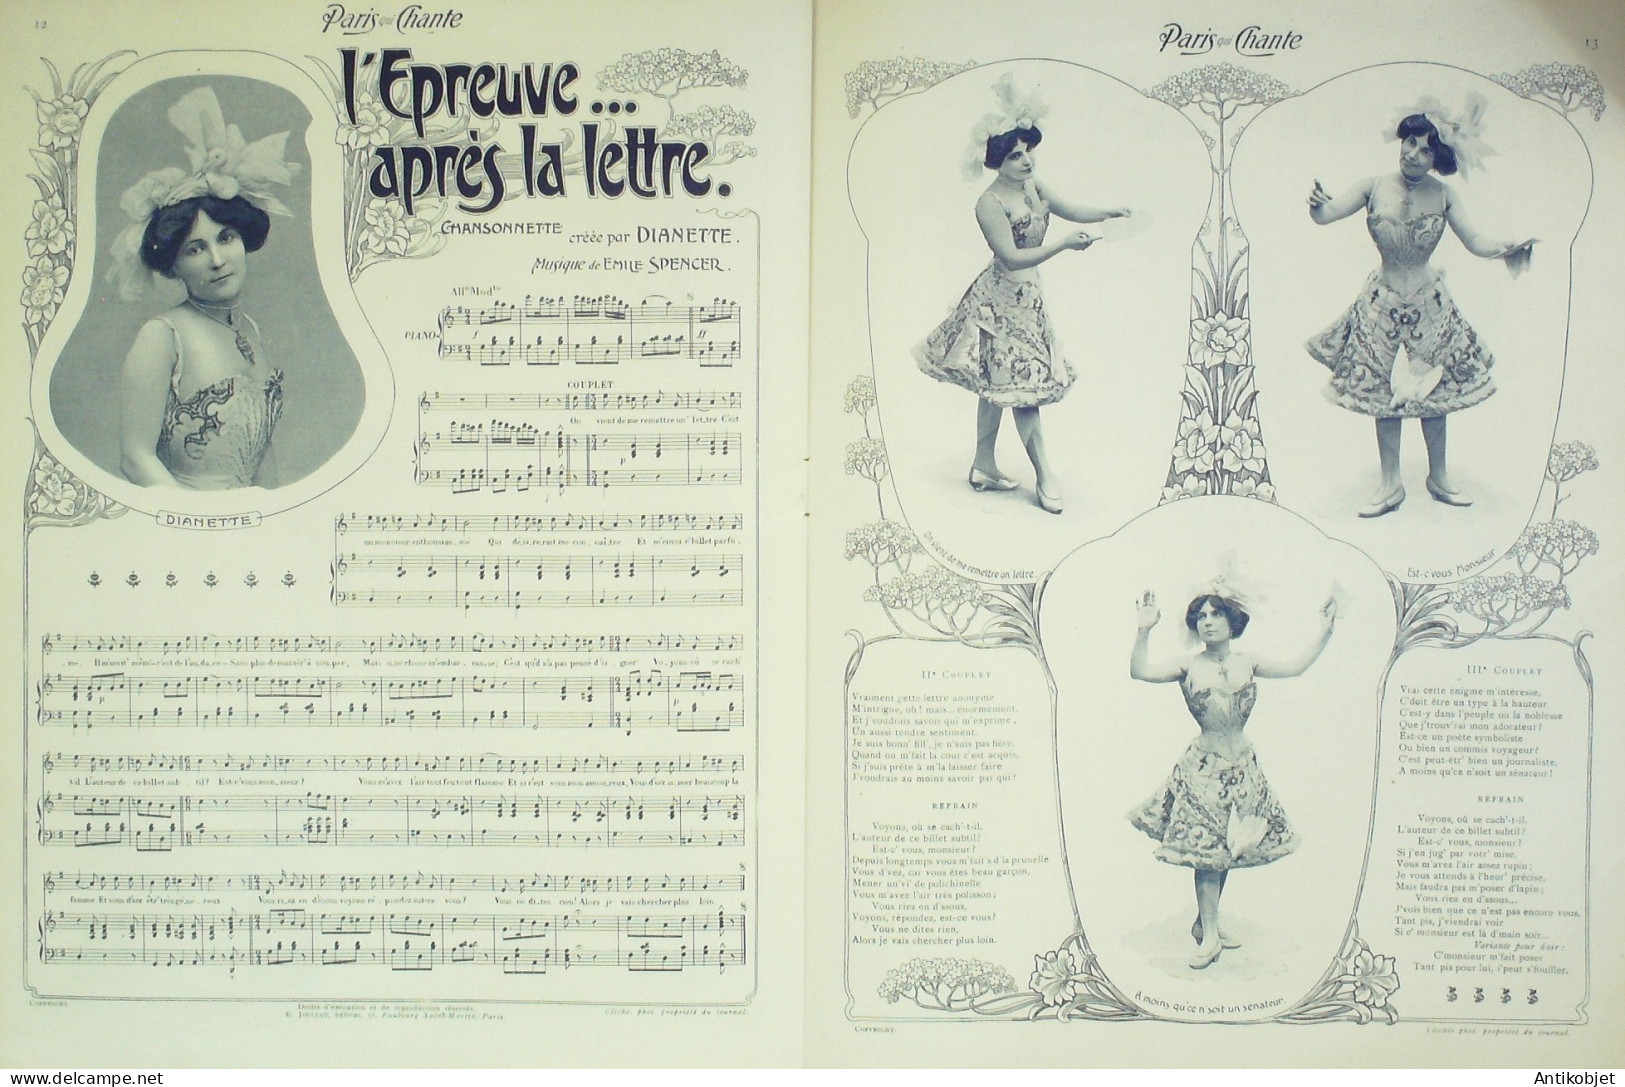 12
Paris qui Chante
l'Epreuve...
après la lettre.
CHANSONNETTE créée par DIANETTE.
Musique de EMILE SPENCER.
All° Modto
PIANO
COUPLET
On vient de me remettre un' let_tre C'est
DIANETTE
un monsieur enthousias_mé Qui dé_si_re_rait me con_naî_tre Et m'envoi' c' billet parfu_
_mé. Il m'invit' mêm'c'est de l'au_da_ce Sans plus de manièr' à sou_per, Mais u_ne chose m'embar_ras_se; C'est qu'il n'a pas pensé d'si_gner Vo_yons où se cach'
t-il L'auteur de ce billet sub_til? Est-c'vous mon_sieur? Vous m'avez l'air tout feu tout flamme Et si c'est vous mon amou_reux, Vous d'vez ai_mer beaucoup la
femme Et vous d'vez êtr' très gé_né_reux Vous ri_ez en d'ssous voyons ré_pondez est-ce vous? Vous ne di_tes rien! Alors je vais chercher plus loin
COPYRIGHT.
Droits d'exécution et de reproduction réservés.
E. JOULLOT, éditeur, 37, Faubourg Saint-Martin, Paris
Clichés phot. propriété du journal.
Paris qui Chante
13
On vient de me remettre un' lettre...
Est-c' vous Monsieur
A moins qu'ce n'soit un sénateur.
IIe COUPLET
Vraiment cette lettre anonyme
M'intrigue, oh! mais... énormément,
Et j'voudrais savoir qui m'exprime,
Un aussi tendre sentiment.
Je suis bonn' fill', je n'suis pas fière,
Quand on m'fait la cour c'est acquis,
Si j'suis prête à m'la laisser faire
J'voudrais au moins savoir par qui?
REFRAIN
Voyons, où se cach'-t-il,
L'auteur de ce billet subtil?
Est-c' vous, monsieur?
Depuis longtemps vous m'fait's d'la prunelle
Vous d'vez, car vous êtes beau garçon,
Mener un'vi' de polichinelle
Vous m'avez l'air très polisson;
Vous riez en d'ssous,
Voyons, répondez, est-ce vous?
Vous ne dites rien,
Alors je vais chercher plus loin.
IIIe COUPLET
Vrai cette énigme m'intéresse,
C'doit être un type à la hauteur
C'est-y dans l'peuple ou la noblesse
Que j'trouv'rai mon adorateur?
Est-ce un poète symboliste
Ou bien un commis voyageur?
C'est peut-êtr' bien un journaliste,
A moins qu'ce n'soit un sénateur!
REFRAIN
Voyons, où se cach'-t-il,
L'auteur de ce billet subtil?
Est-c' vous, monsieur?
Si j'en jug' par votr' mise,
Vous m'avez l'air assez rupin;
Je vous attends à l'heur' précise,
Mais faudra pas m'poser d'lapin;
Vous riez en d'ssous...
J'vois bien que ce n'est pas encore vous.
Tant pis, j'viendrai voir
Si c' monsieur est là d'main soir...
Variante pour finir:
C'monsieur m'fait poser
Tant pis pour lui, i'peut s'fouiller.
COPYRIGHT.
Clichés phot. propriété du journal.
www.antikobjet.fr
Antikobjet